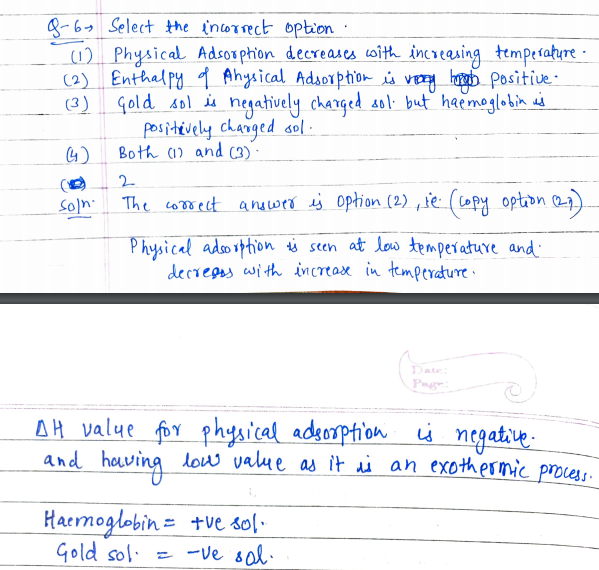 Q-6→ Select the incorrect option.
(1) Physical Adsorption decreases with increasing temperature.
(2) Enthalpy of Physical Adsorption is positive.
(3) Gold sol is negatively charged sol. but haemoglobin is
positively charged sol.
(4) Both (1) and (3).
2
Soln. The correct answer is option (2), ie. (copy option (2))
Physical adsorption is seen at low temperature and
decreases with increase in temperature.
Date:
Page:
ΔH value for physical adsorption is negative.
and having low value as it is an exothermic process.
Haemoglobin = +ve sol.
Gold sol. = -ve sol.